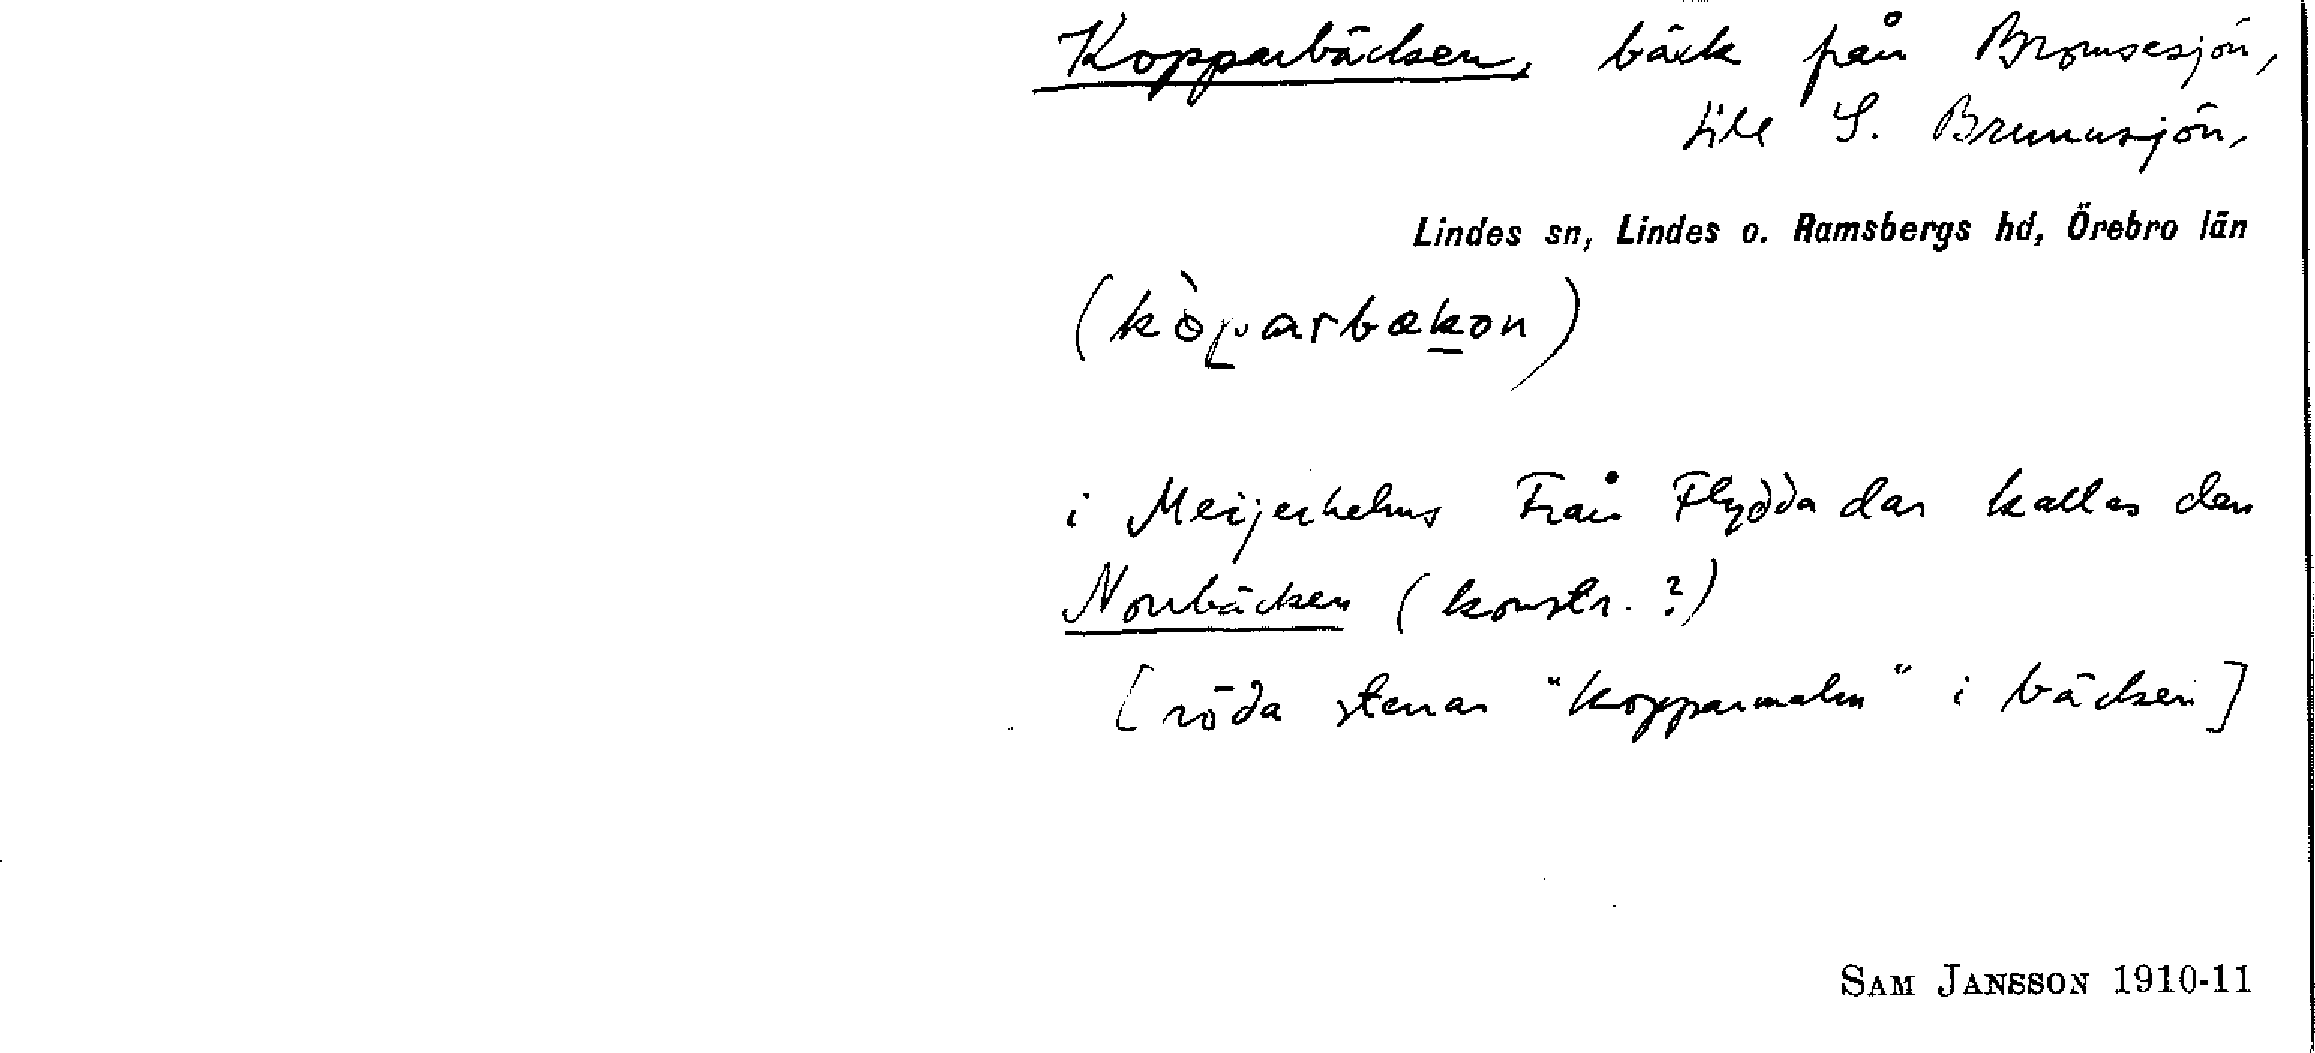 Kopparbäcken, bäck från Bromsesjön,
till S. Brunnsjön,
Lindes sn, Lindes o. Ramsbergs hd, Örebro län
(kòparbækon)
i Meijerhelms Från Flydda dar kallas den
Norrbäcken (konstr. ?)
[röda stenar "kopparmalm" i bäcken]
SAM JANSSON 1910-11